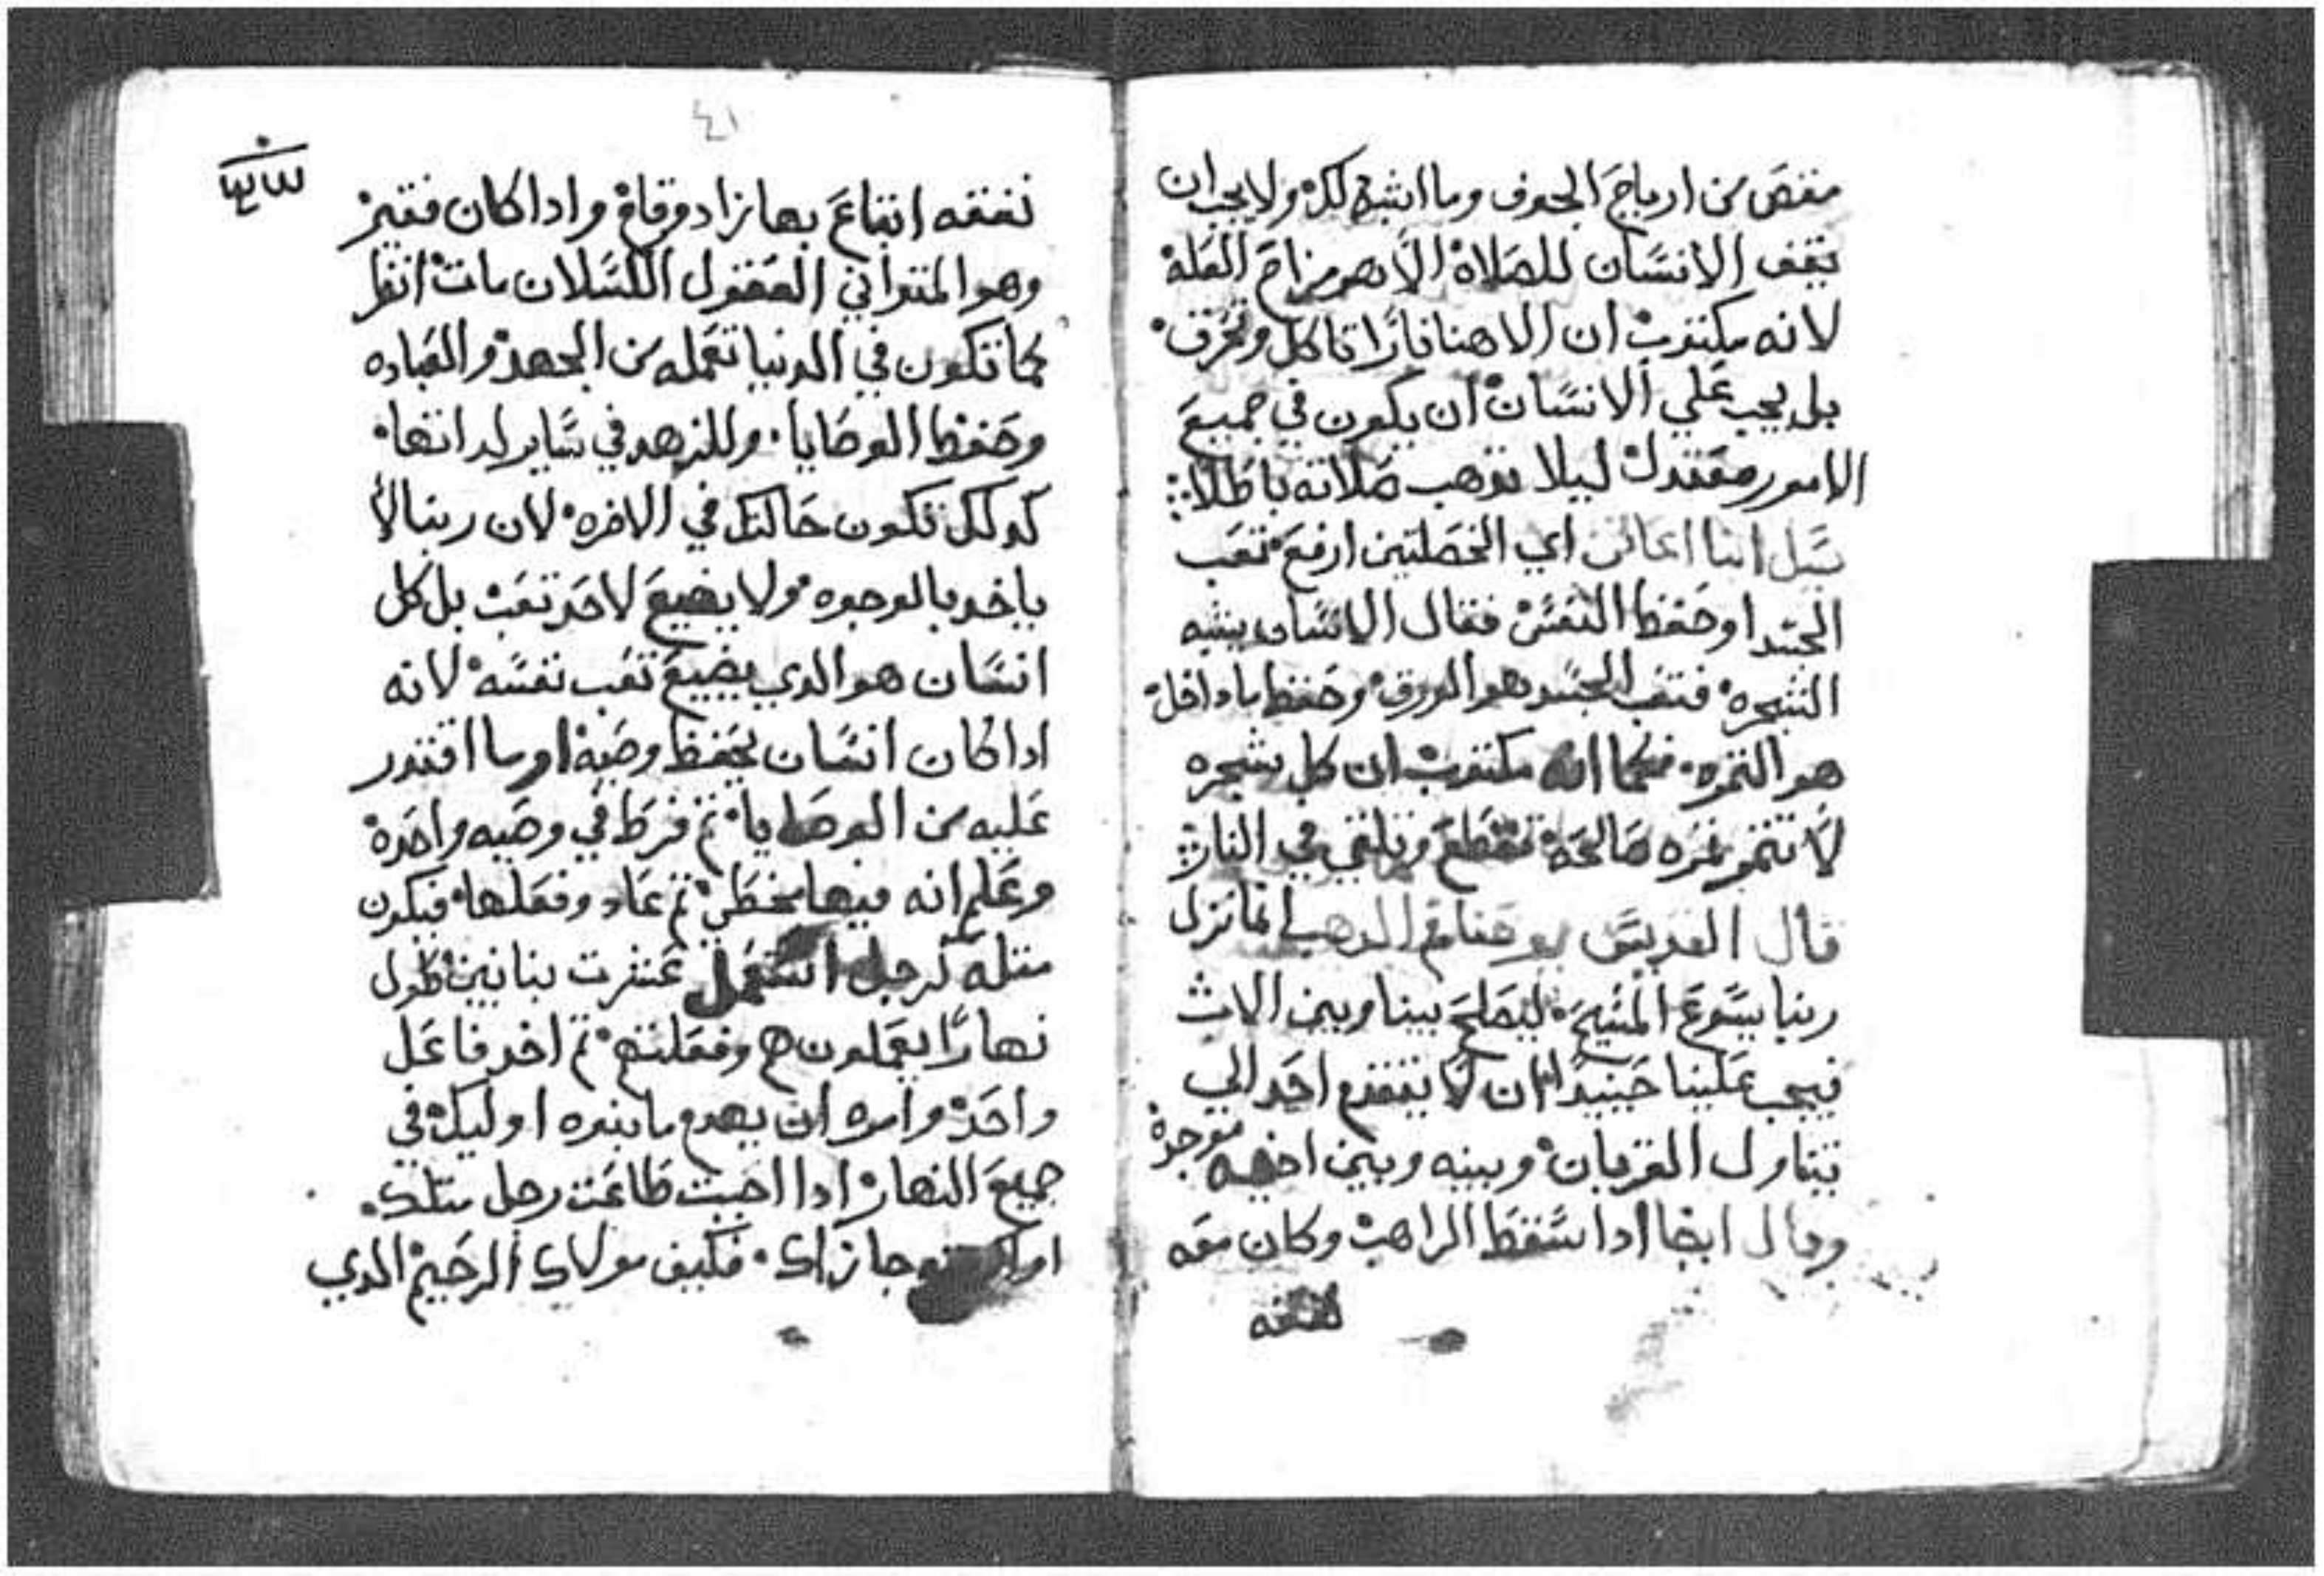 مغص من ارياح الجوف وما اشبه لك ولا يجب ان
يقف الانسان للصلاة الا بهم مزاح العله
لانه مكتوب ان الاهنا نارا تاكل وتحرق
بل يجب علي الانسان ان يكون في جميع
الامور معتدل ليلا تدهب صلاته باطلا
سيل انبا اغاتن اي الخصلتين ارفع تعب
الجسد او حفظ النفس فقال الانسان يشبه
الشجره فتعب الجسد هو الورق وحفظ ما داخل
هو الثمره فكما انه مكتوب ان كل شجره
لا تتمر تمره صالحه تقطع وتلقي في النار
قال القديس يوحنا فم الدهب انما نزل
ربنا يسوع المسيح ليصلح بيننا وبين الاب
فيجب علينا حينيدا ان لا يتقدم احد الي
يتناول القربان وبينه وبين اخيه موجدة
وقال ايضا ادا سقط الراهب وكان معه
نفقه
٤١
نفقه ابتاع بها زاد وقام وادا كان فقير
وهو المتواني الغفول الكسلان مات انظر
كما تكون في الدنيا تعمله من الجهد والعباده
وحفظ الوصايا وللزهد في ساير لداتها
كدلك تكون حالتك في الاخره لان ربنا لا
ياخد بالوجوه ولا يضيع لاحد تعب بل كل
انسان هو الدي يضيع تعب نفسه لانه
ادا كان انسان يحفظ وصيه او ما اقتدر
عليه من الوصايا تم فرط في وصيه واحدة
وعلم انه فيها مخطي تم عاد وفعلها فيكون
متله كرجل استعمل عشرت بنايين طول
نهارا يعملون هم وفعلتهم تم اخد فاعل
واحد وامره ان يهدم ما بنوه اوليك في
جميع النهار ادا احببت طاعت رجل متلك
جازاك فكيف مولاك الرحيم الدي